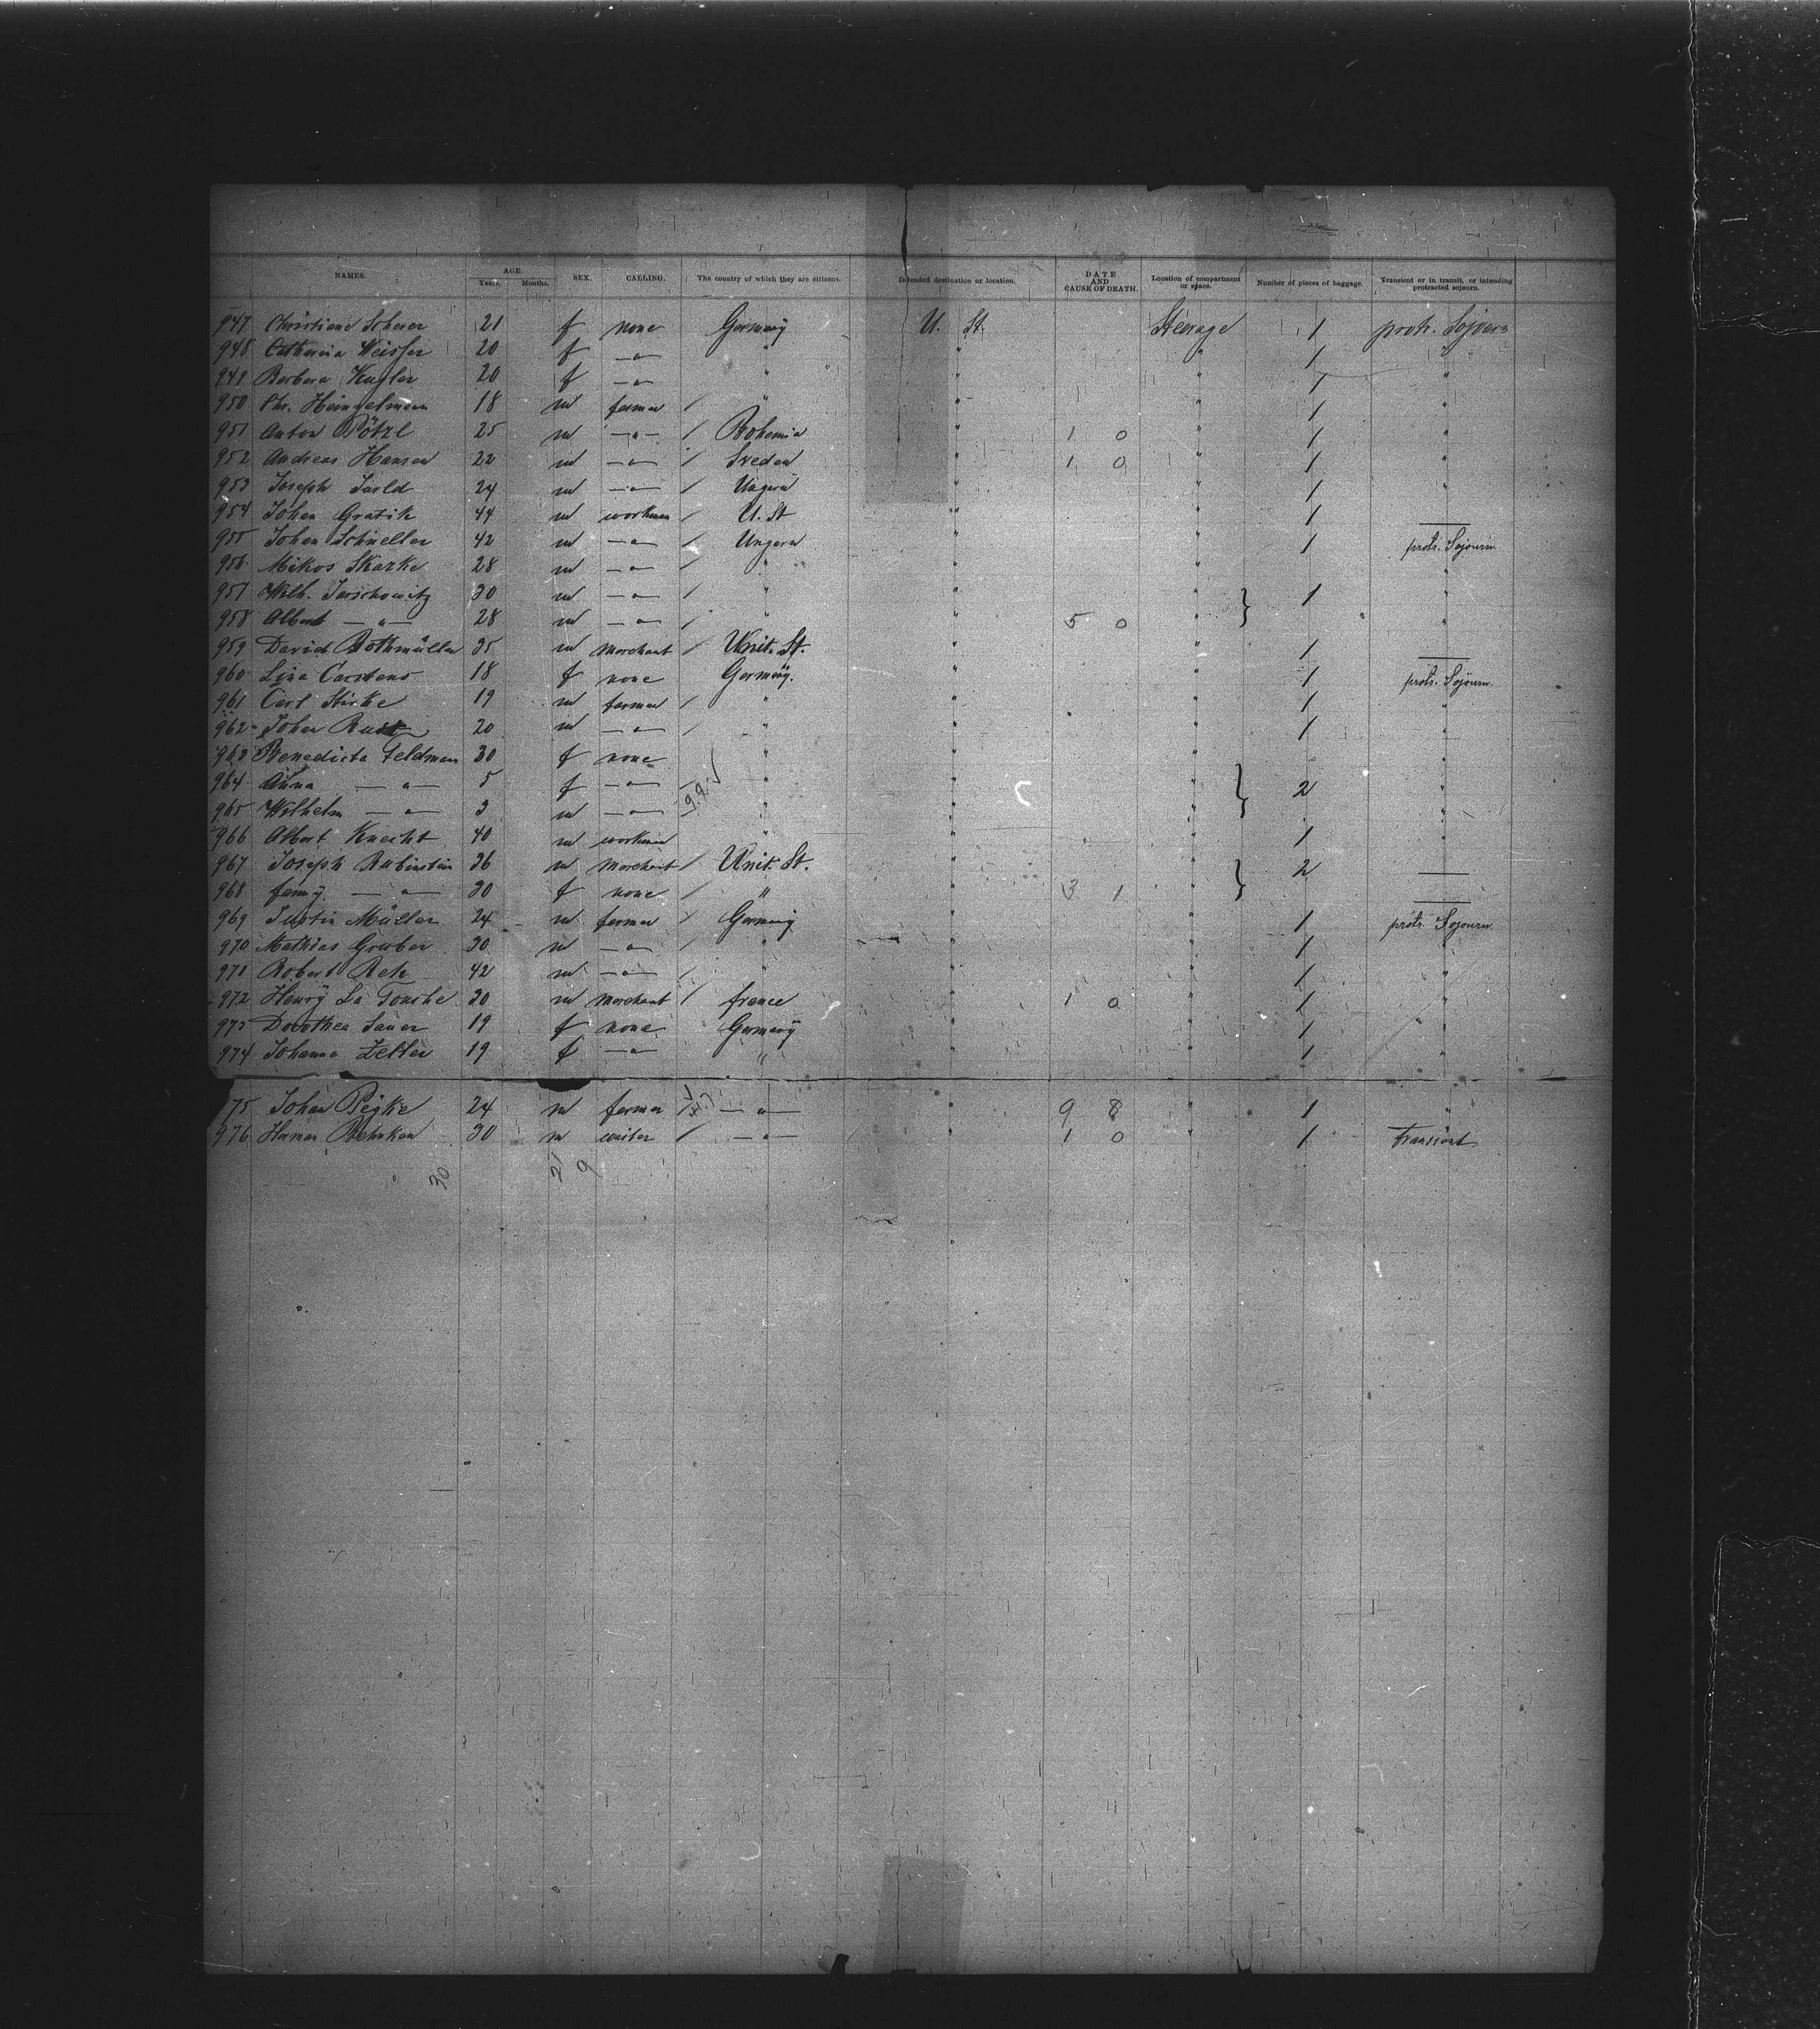 NAMES. AGE. Years. Months. SEX. CALLING. The country of which they are citizens. Intended destination or location. DATE AND CAUSE OF DEATH. Location of compartment or space. Number of pieces of baggage. Transient or in transit, or intending protracted sojourn.
947 Christiane Scherer 21 f none Germany U. St. Steerage 1 protr. Sojourn
948 Catharina Weisser 20 f —"— " " " 1 "
949 Barbara Kugler 20 f —"— " " " 1 "
950 Chr. Heinzelmann 18 m farmer / " " " 1 "
951 Anton Pötzl 25 m —"— / Bohemia " 1 0 " 1 "
952 Andreas Hansen 22 m —"— / Sveden " 1 0 " 1 "
953 Joseph 24 m —"— / Ungarn " " 1 "
954 Johan Gratik 44 m workman / U. St " " 1 ——
955 Johan Schneller 42 m —"— / Ungarn " " 1 protr. Sojourn.
956 Mikos Skarke 28 m —"— / " " " "
957 Wilh. 30 m —"— / " " " } 1 "
958 Albert —"— 28 m —"— / " " 5 0 " "
959 David Rothmüller 35 m Merchant / Unit. St. " " 1 ——
960 Lina Carstens 18 f none Germany. " " 1 protr. Sojourn.
961 Carl Stirke 19 m farmer / " " " 1 "
962 Johan 20 m —"— / " " " 1 "
963 Benedicta Feldmann 30 f none " " " "
964 Anna —"— 5 f —"— " " " } 2 "
965 Wilhelm —"— 3 m —"— " " " "
966 Albert Knecht 40 m workman " " " 1 "
967 Joseph Rubinstein 36 m Merchant / Unit. St. " " } 2 ——
968 fanny —"— 30 f none / " " 3 1 " ——
969 Justin Müller 24 m farmer / Germany " " 1 protr. Sojourn.
970 Mathias Gruber 30 m —"— / " " " 1 "
971 Robert 42 m —"— / " " " 1 "
972 Henry La Tousche 30 m Merchant / france " 1 0 " 1 "
973 Dorothea Sauer 19 f none Germany " " 1 "
974 Johanna Zeller 19 f —"— " " " 1 "
75 Johan 24 m farmer / —"— " 9 8 " 1 "
976 Herman Behnken 30 m waiter / —"— " 1 0 " 1 Transiort
30 21 9